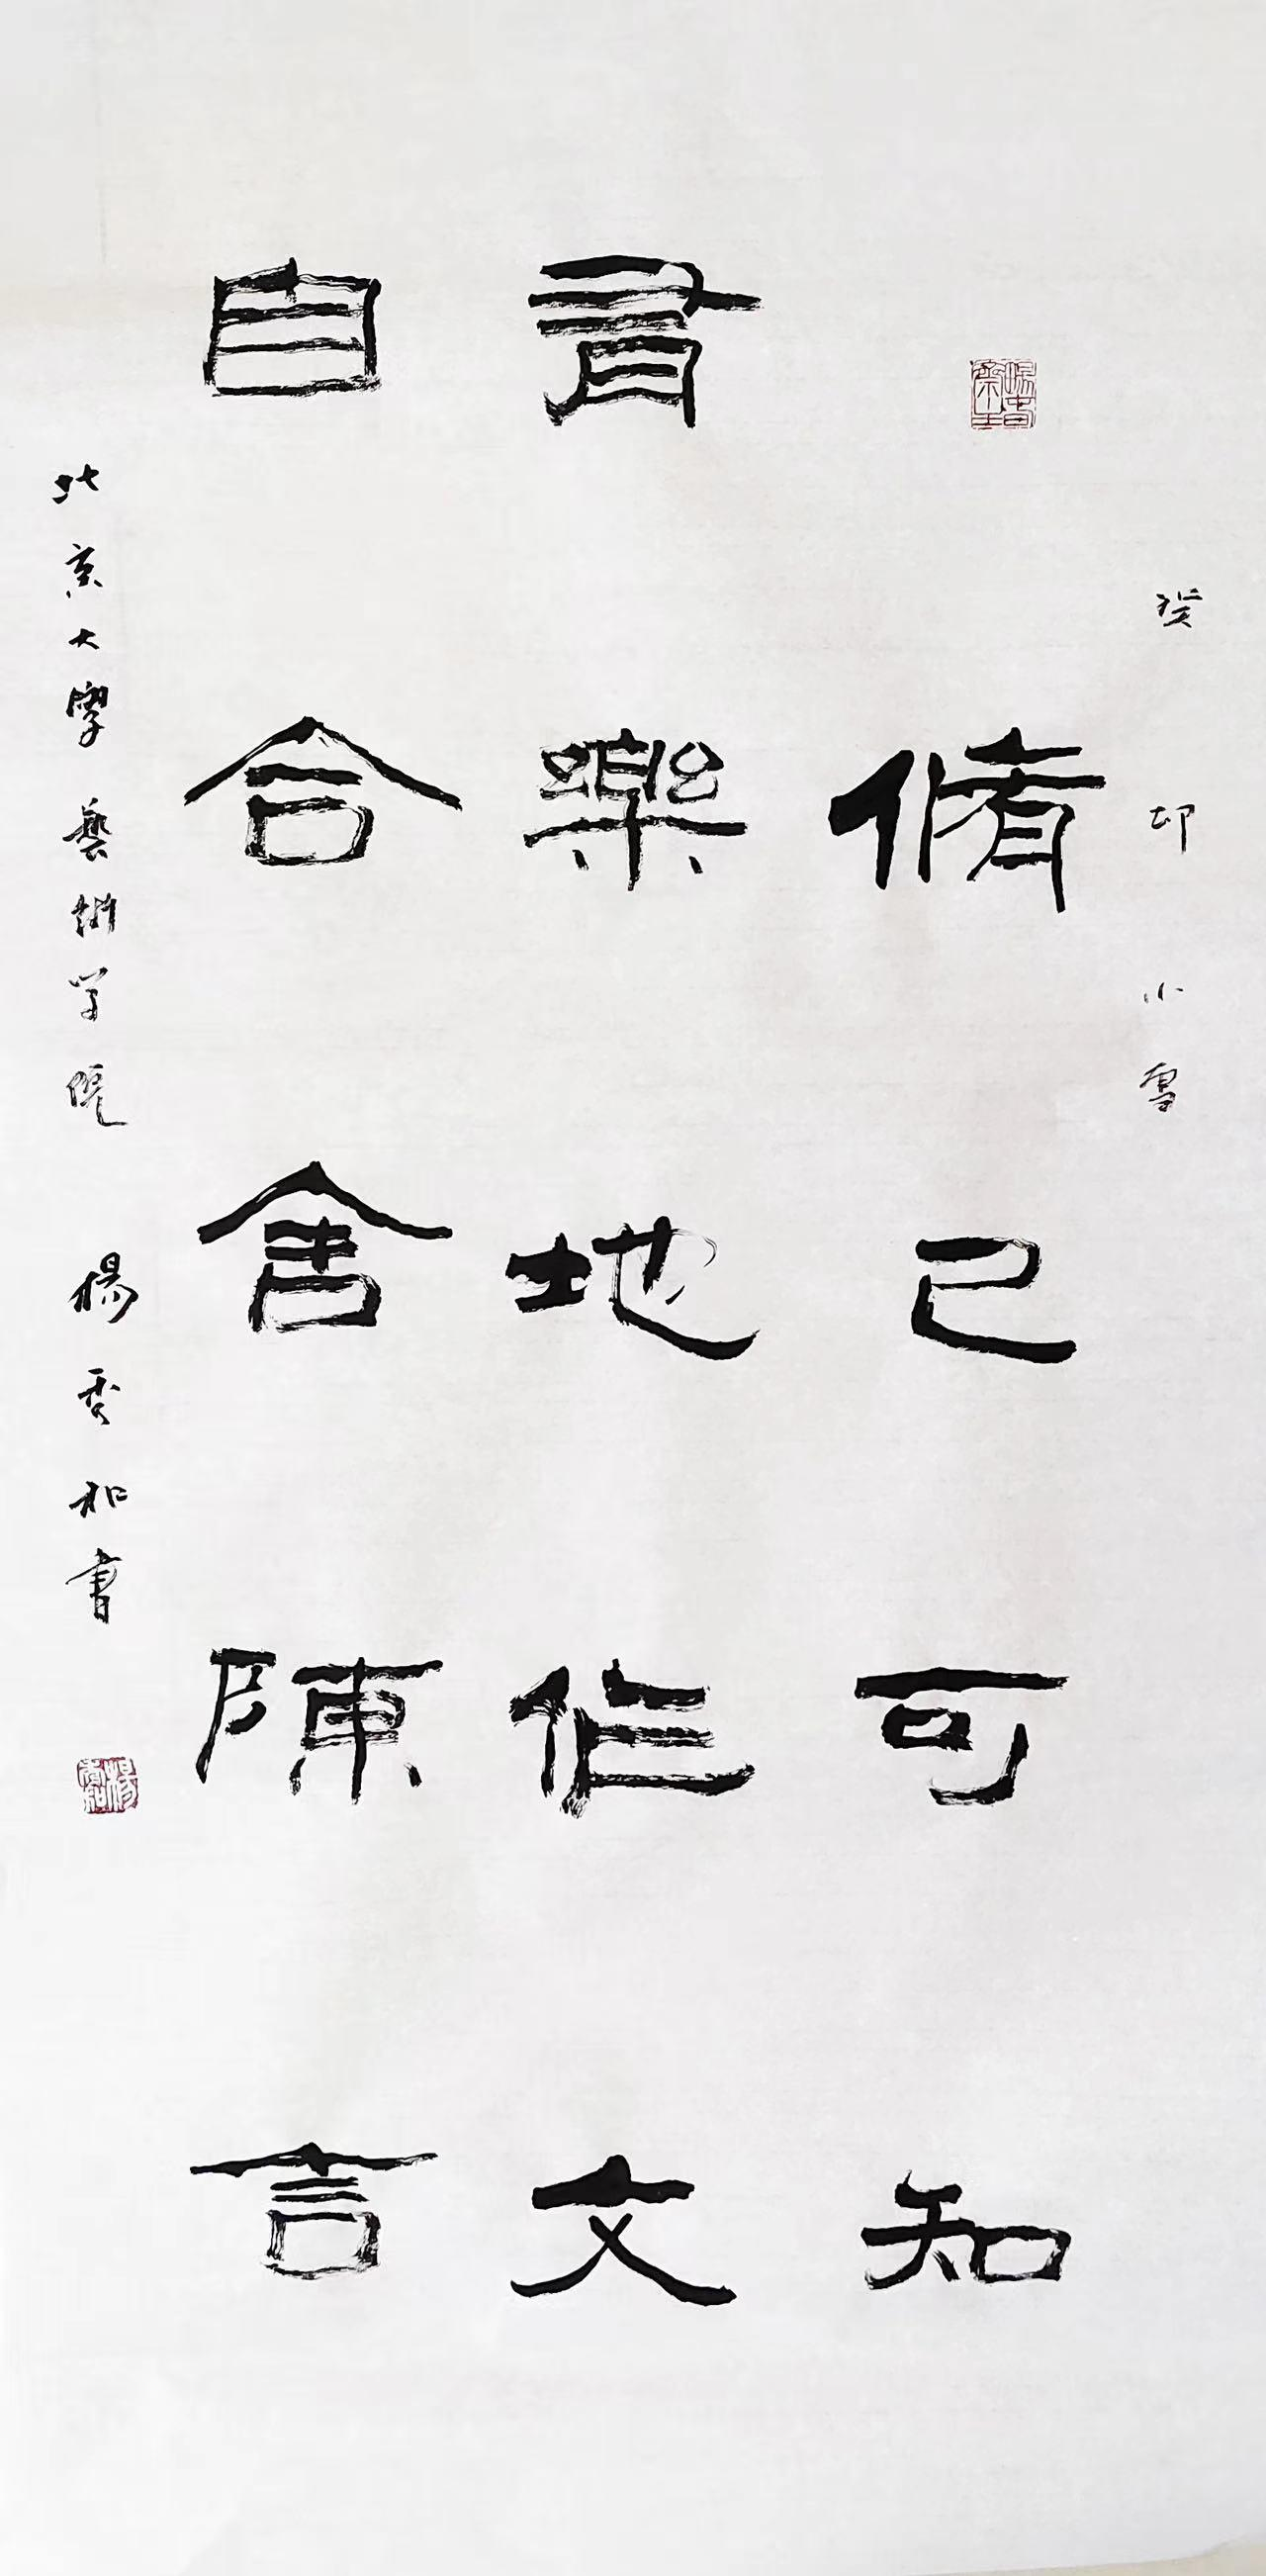 癸卯小雪
脩己可知
有樂地作文
自合舍陳言
北京大學藝術学院 楊秀和書